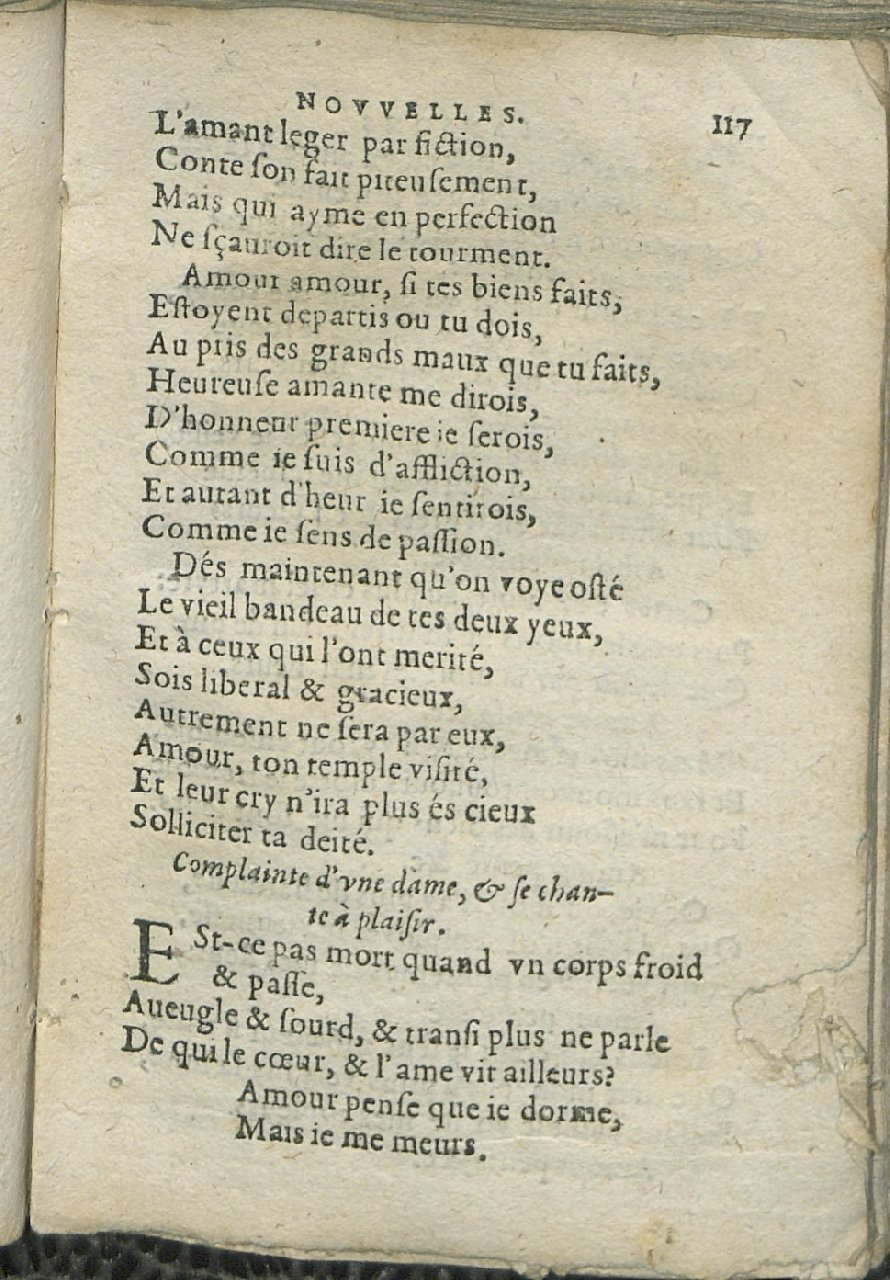 NOVVELLES. 117
L'amant leger par fiction,
Conte ſon fait piteuſement,
Mais qui ayme en perfection
Ne ſçauroit dire le tourment.
Amour amour, ſi tes biens faits,
Eſtoyent departis ou tu dois,
Au pris des grands maux que tu faits,
Heureuſe amante me dirois,
D'honneur premiere ie ſerois,
Comme ie ſuis d'affliction,
Et autant d'heur ie ſentirois,
Comme ie ſens de paſſion.
Dés maintenant qu'on voye oſté
Le vieil bandeau de tes deux yeux,
Et à ceux qui l'ont merité,
Sois liberal & gracieux,
Autrement ne ſera par eux,
Amour, ton temple viſité,
Et leur cry n'ira plus és cieux
Solliciter ta deité.
Complainte d'vne dame, & ſe chan-
te à plaiſir.
ESt-ce pas mort quand vn corps froid
& paſſe,
Aueugle & ſourd, & tranſi plus ne parle
De qui le cœur, & l'ame vit ailleurs?
Amour penſe que ie dorme,
Mais ie me meurs.